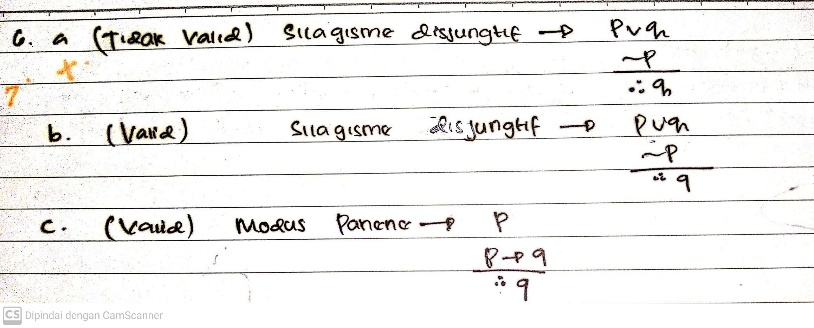 6. a (Tidak Valid) Silagisme disjungtif → p∨q
~p
7. x
∴ q
b. (Valid) Silagisme disjungtif → p∨q
~p
∴ q
c. (Valid) Modus Panene → p
p→q
∴ q
CS Dipindai dengan CamScanner